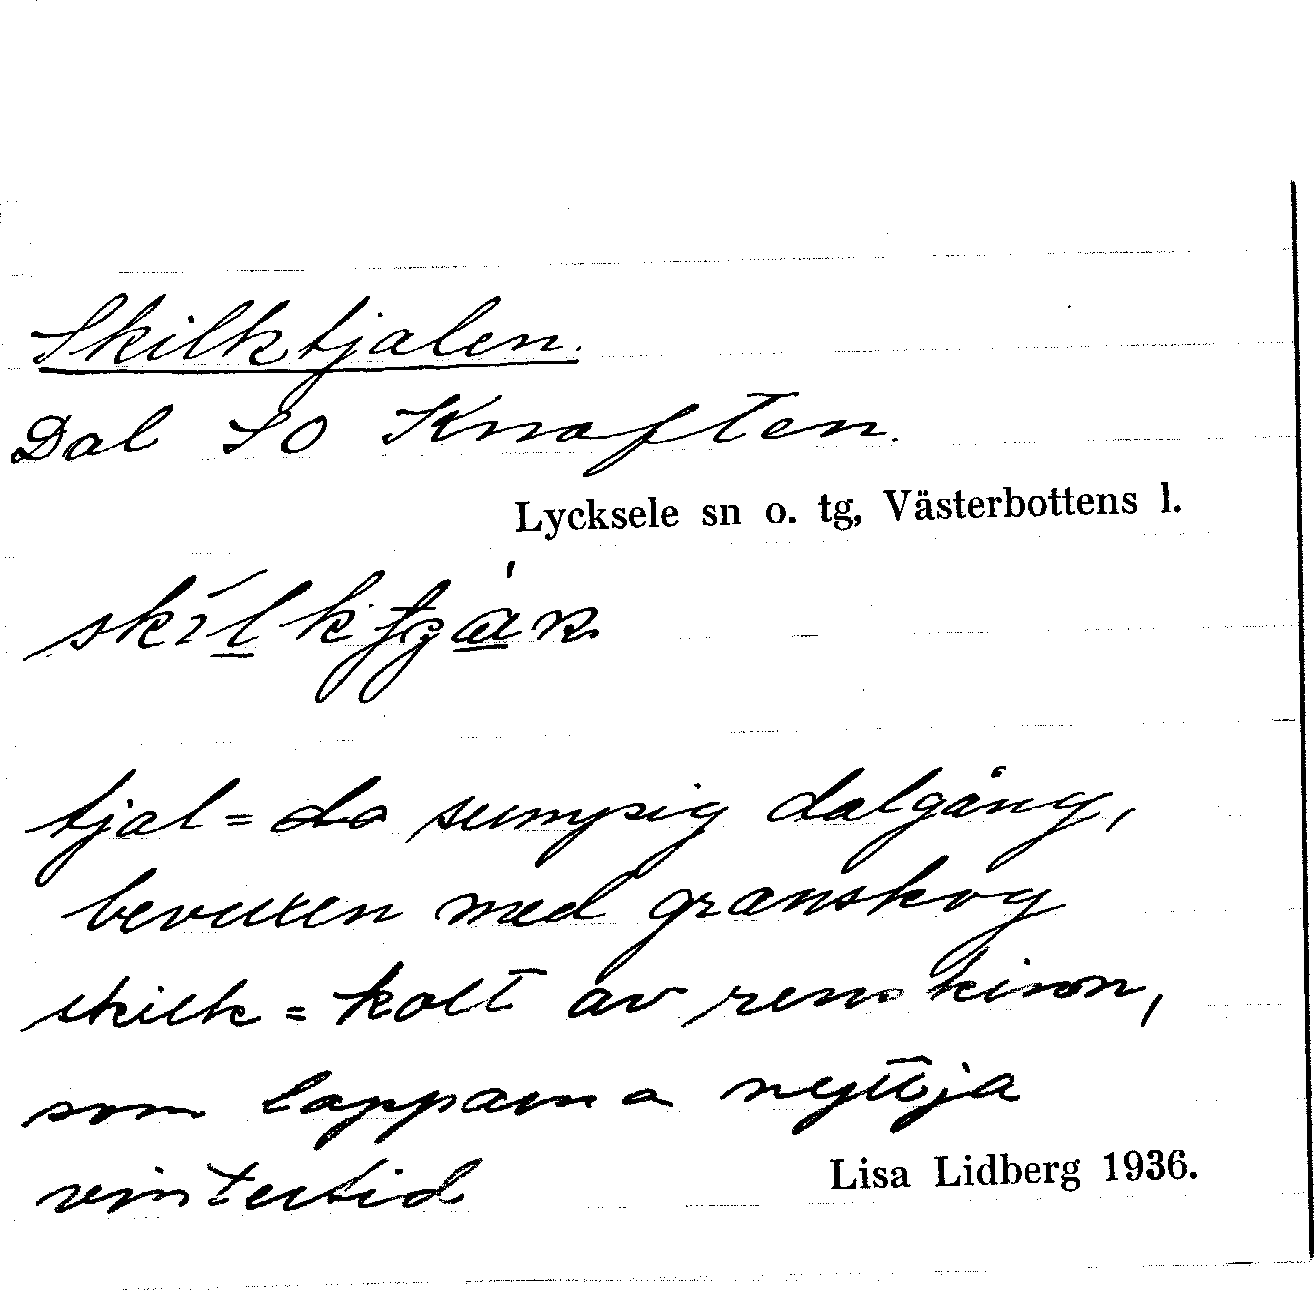 Skilktjalen.
Dal SO Knaften.
Lycksele sn o. tg, Västerbottens l.
tjal = sumpig dalgång,
bevuxen med granskog
skilk = kolt av renskinn,
som lapparna nyttja
vintertid
Lisa Lidberg 1936.